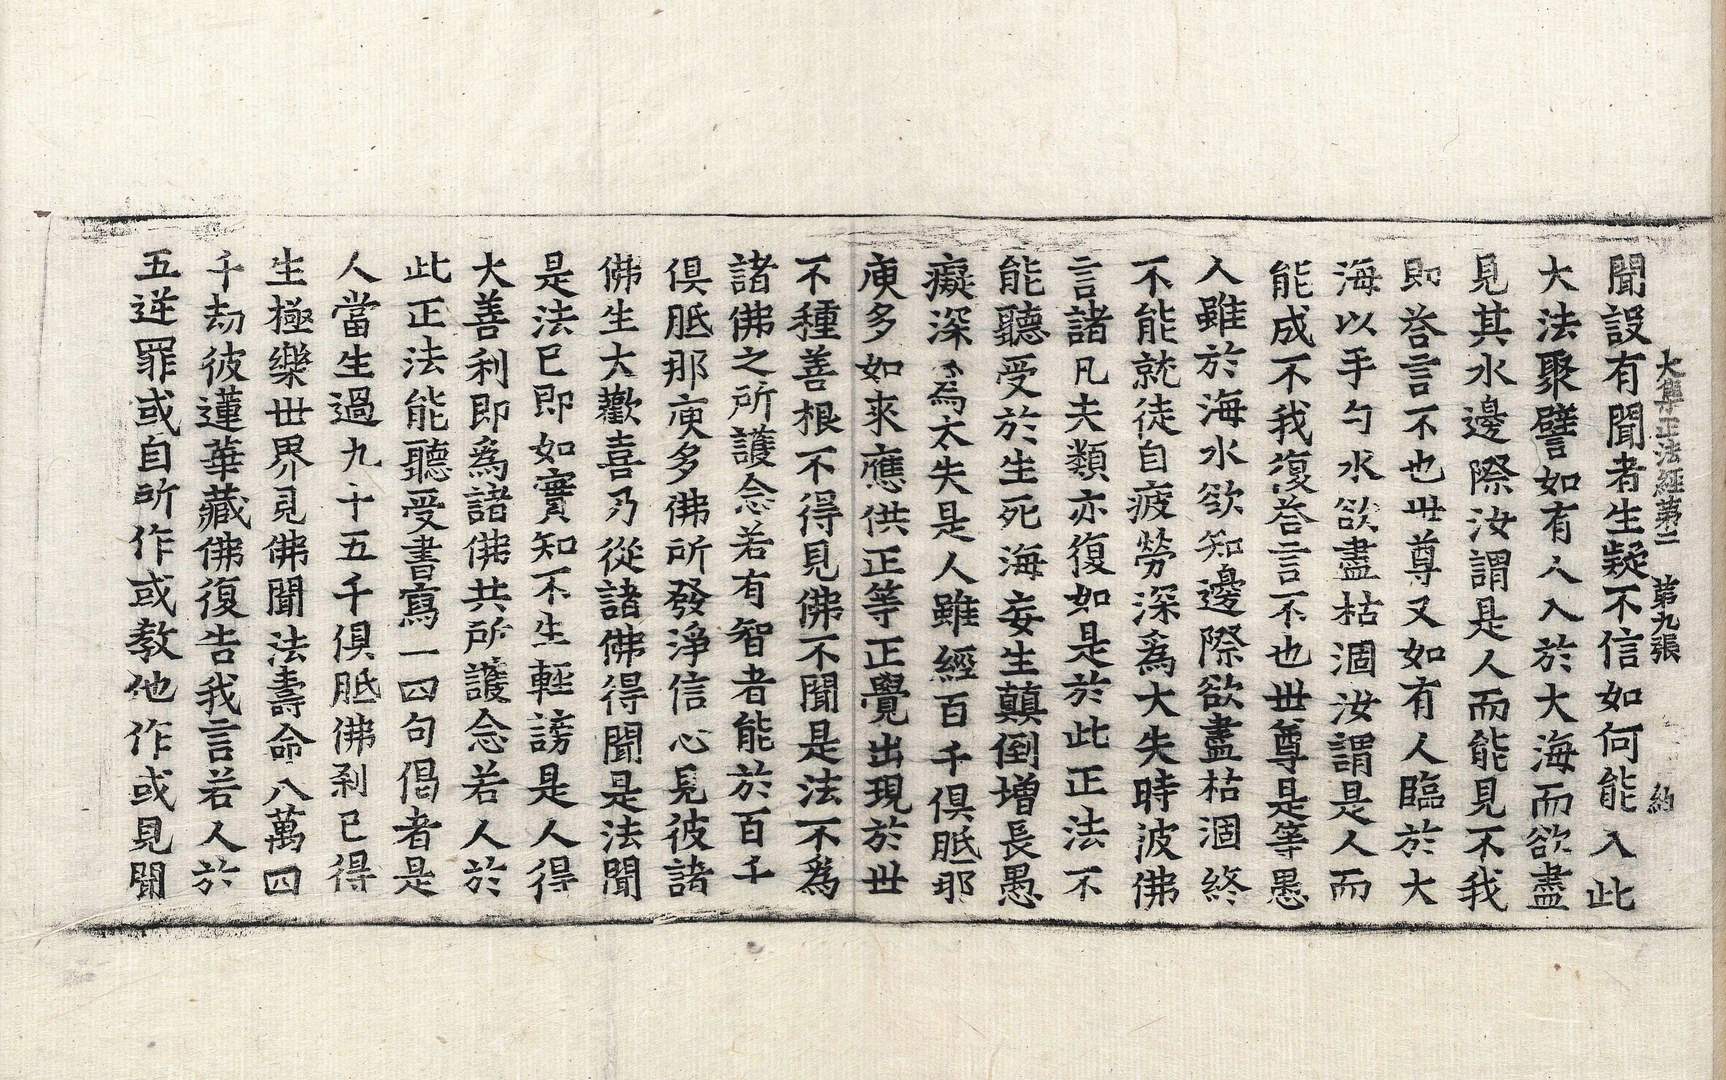 大集正法經第二 第九張 約
聞設有聞者生疑不信如何能入此
大法聚譬如有人入於大海而欲盡
見其水邊際汝謂是人而能見不我
即荅言不也世尊又如有人臨於大
海以手勺水欲盡枯涸汝謂是人而
能成不我復荅言不也世尊是等愚
人雖於海水欲知邊際欲盡枯涸終
不能就徒自疲勞深爲大失時波佛
言諸凡夫類亦復如是於此正法不
能聽受於生死海妄生顛倒增長愚
癡深爲大失是人雖經百千俱胝那
庾多如來應供正等正覺出現於世
不種善根不得見佛不聞是法不爲
諸佛之所護念若有智者能於百千
俱胝那庾多佛所發淨信心見彼諸
佛生大歡喜乃從諸佛得聞是法聞
是法已即如實知不生輕謗是人得
大善利即爲諸佛共所護念若人於
此正法能聽受書寫一四句偈者是
人當生過九十五千俱胝佛刹已得
生極樂世界見佛聞法壽命八萬四
千劫彼蓮華藏佛復告我言若人於
五逆罪或自所作或教他作或見聞